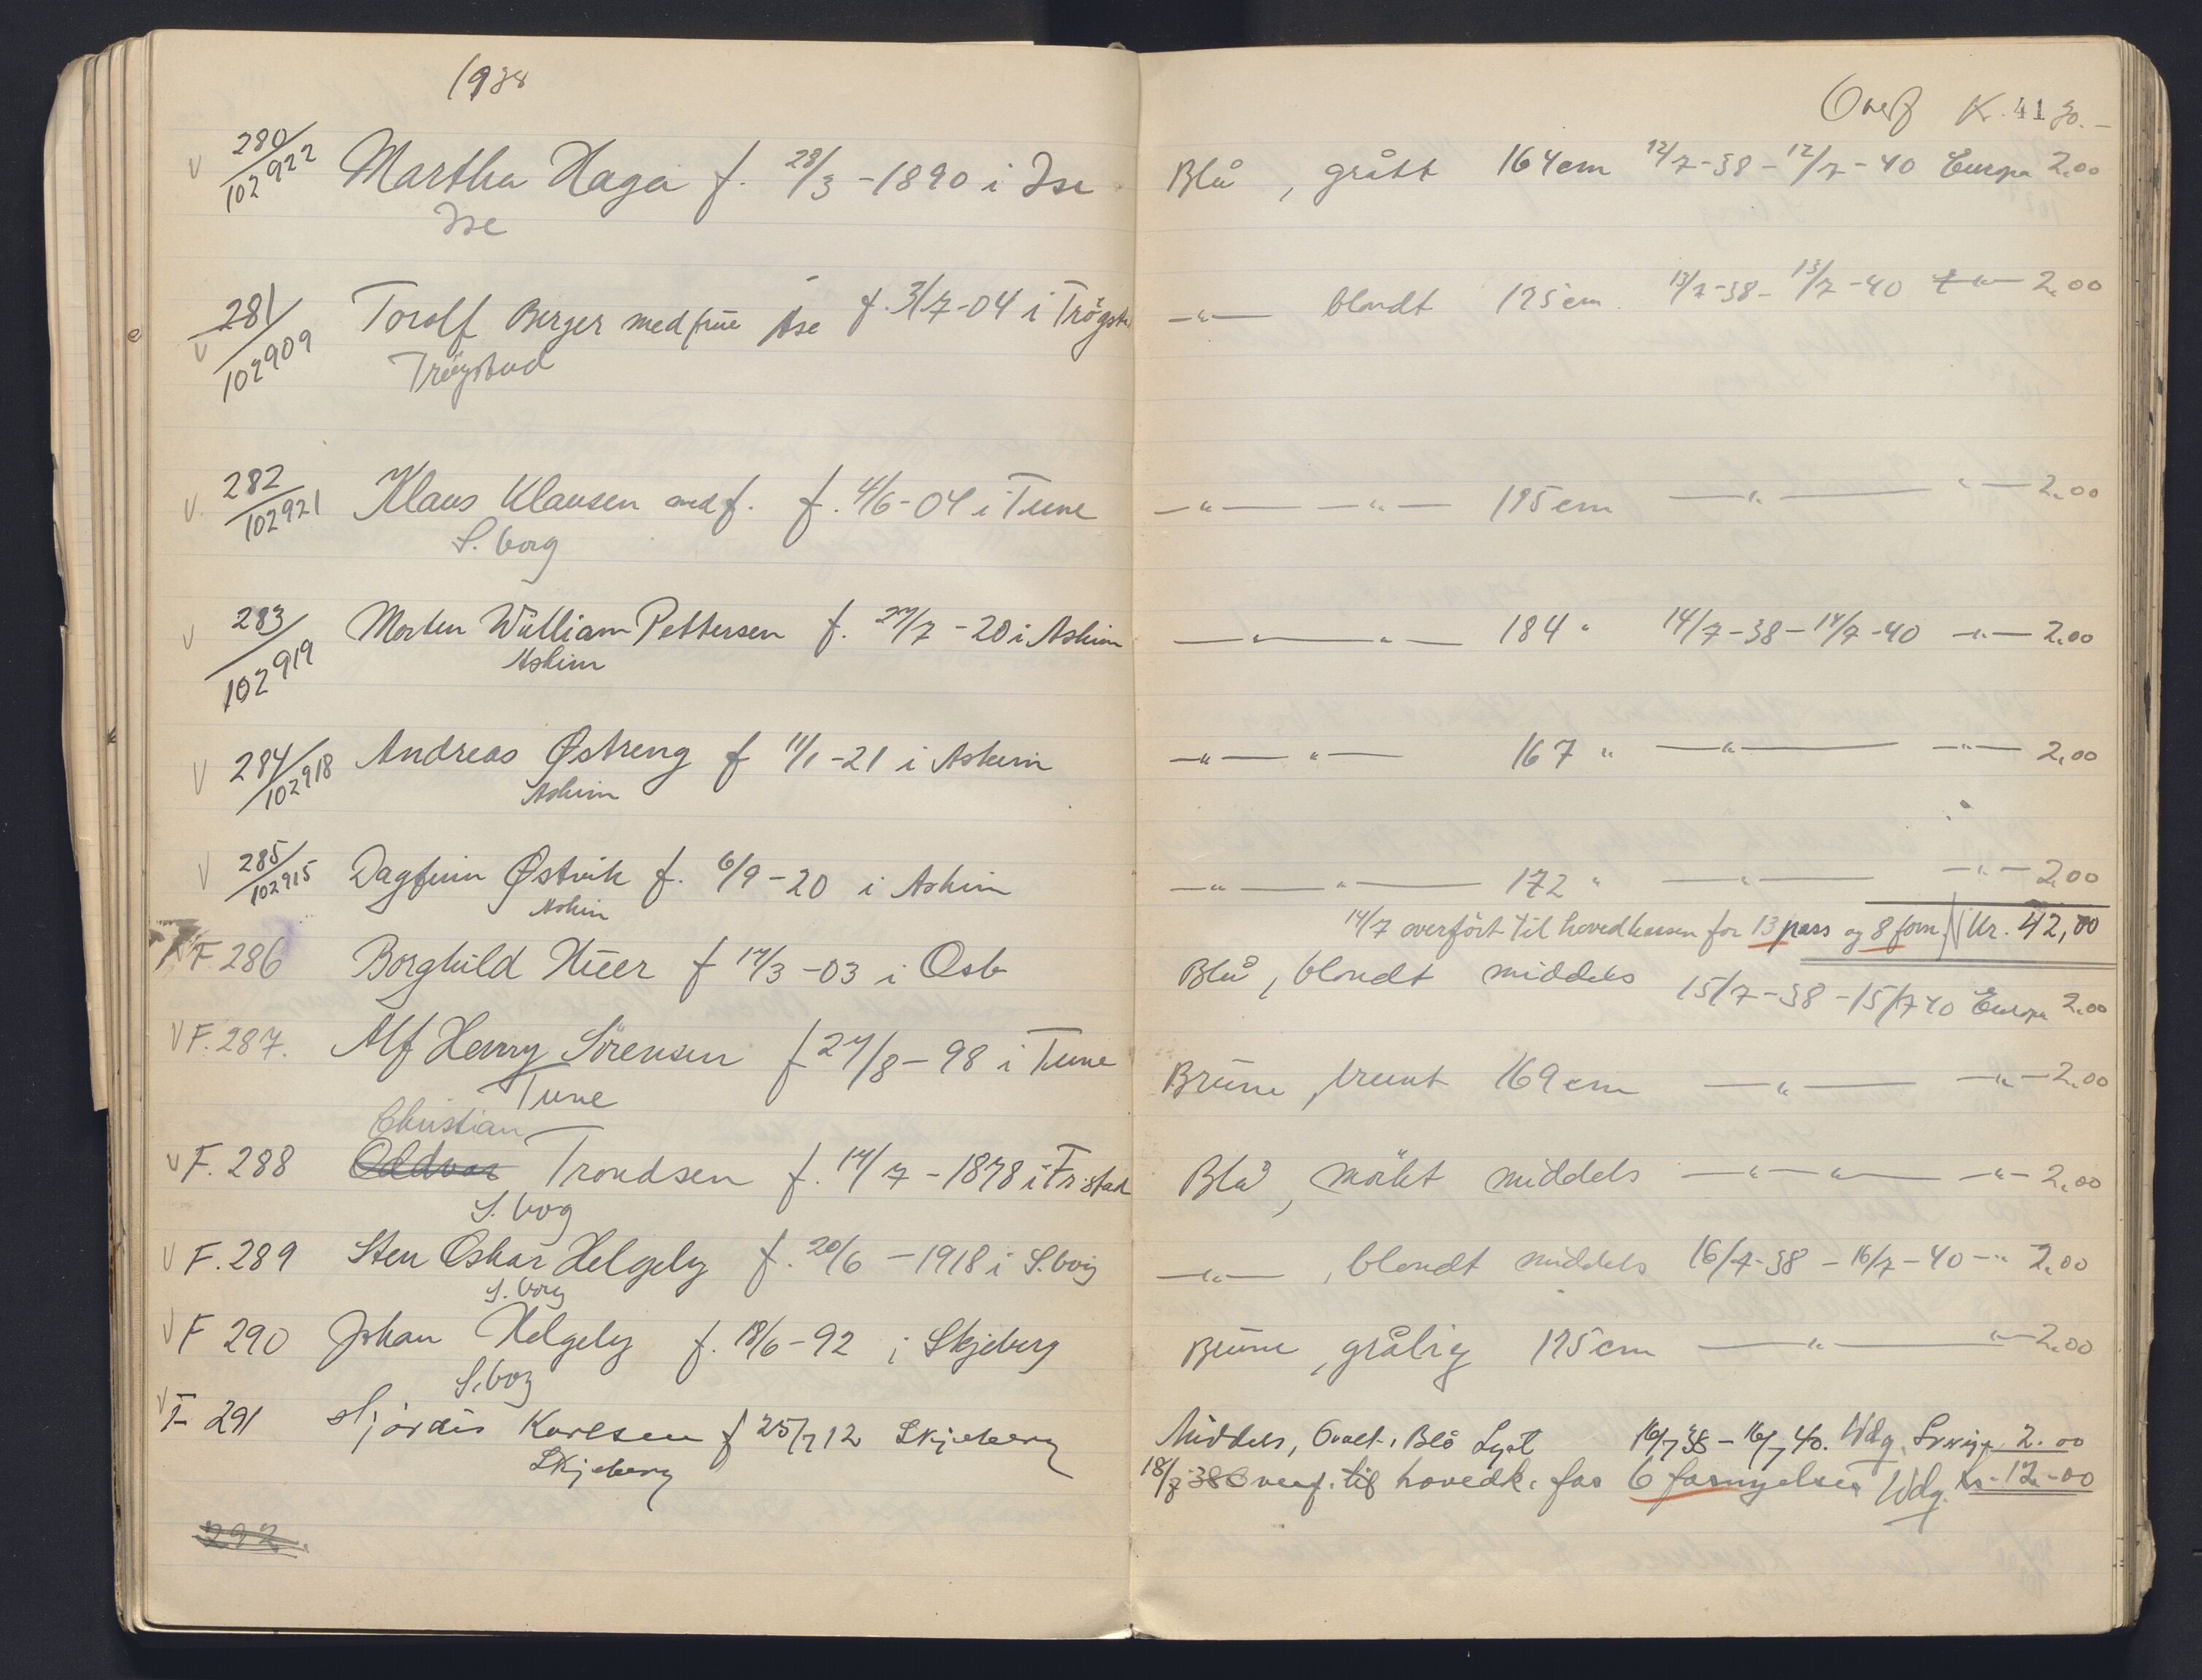 1938
Overf Kr. 41 30.-
280/102922 Martha Haga f. 28/3 -1890 i Ise Blå, grått 164 cm 12/7-38-12/7-40 Europa 2.00
Ise
281/102909 Torolf Berger med frue Åse f. 3/7-04 i Trögst. -"- blondt 175 cm 13/7-38-13/7-40 -"- 2.00
Trögstad
282/102921 Klaus Klausen med f. f. 4/6-04 i Tune -"- -"- 175 cm -"- "- 2.00
S.borg
283/102919 Morten William Pettersen f. 27/7 -20 i Askim -"- "- 184 " 14/7-38-14/7-40 -"- 2.00
Askim
284/102918 Andreas Østreng f 11/1 -21 i Askim -"- "- 167 " -"- -"- 2.00
Askim
285/102915 Dagfinn Østvik f. 6/9-20 i Askim -"- "- 172 " -"- -"- 2.00
Askim
14/7 overfört til hovedkassen for 13 pass og 8 forn. Kr. 42,00
F. 286 Borghild Huer f 17/3 -03 i Blå, blondt middels 15/7-38-15/7 40 Europa 2.00
V F. 287. Alf Henry Sörensen f 27/8-98 i Tune Brune, brunt 169 cm -"- -"- 2.00
Tune
Christian
V F. 288 Oddvar Trondsen f. 14/7 -1878 i Fr.stad Blå, mörkt middels -"-"- -"- 2.00
S.borg
V F. 289 Sten Oskar Helgeby f. 20/6 -1918 i S.borg -"-, blondt middels 16/7-38-16/7-40-" 2.00
S.borg
V F 290 Johan Helgeby f. 18/6-92 i Skjeberg Brune, grålig 175 cm -"- "- 2.00
S.borg
V F 291 Hjørdis Karlsen f 25/7 12 Skjeberg Middels, Ovalt, Blå Lyst 16/7 38-16/7 40. Wdg. 2.00
Skjeberg
18/7-38 Overf. til hovedk. for 6 fornyelser Wdg. kr. 12.00
292.